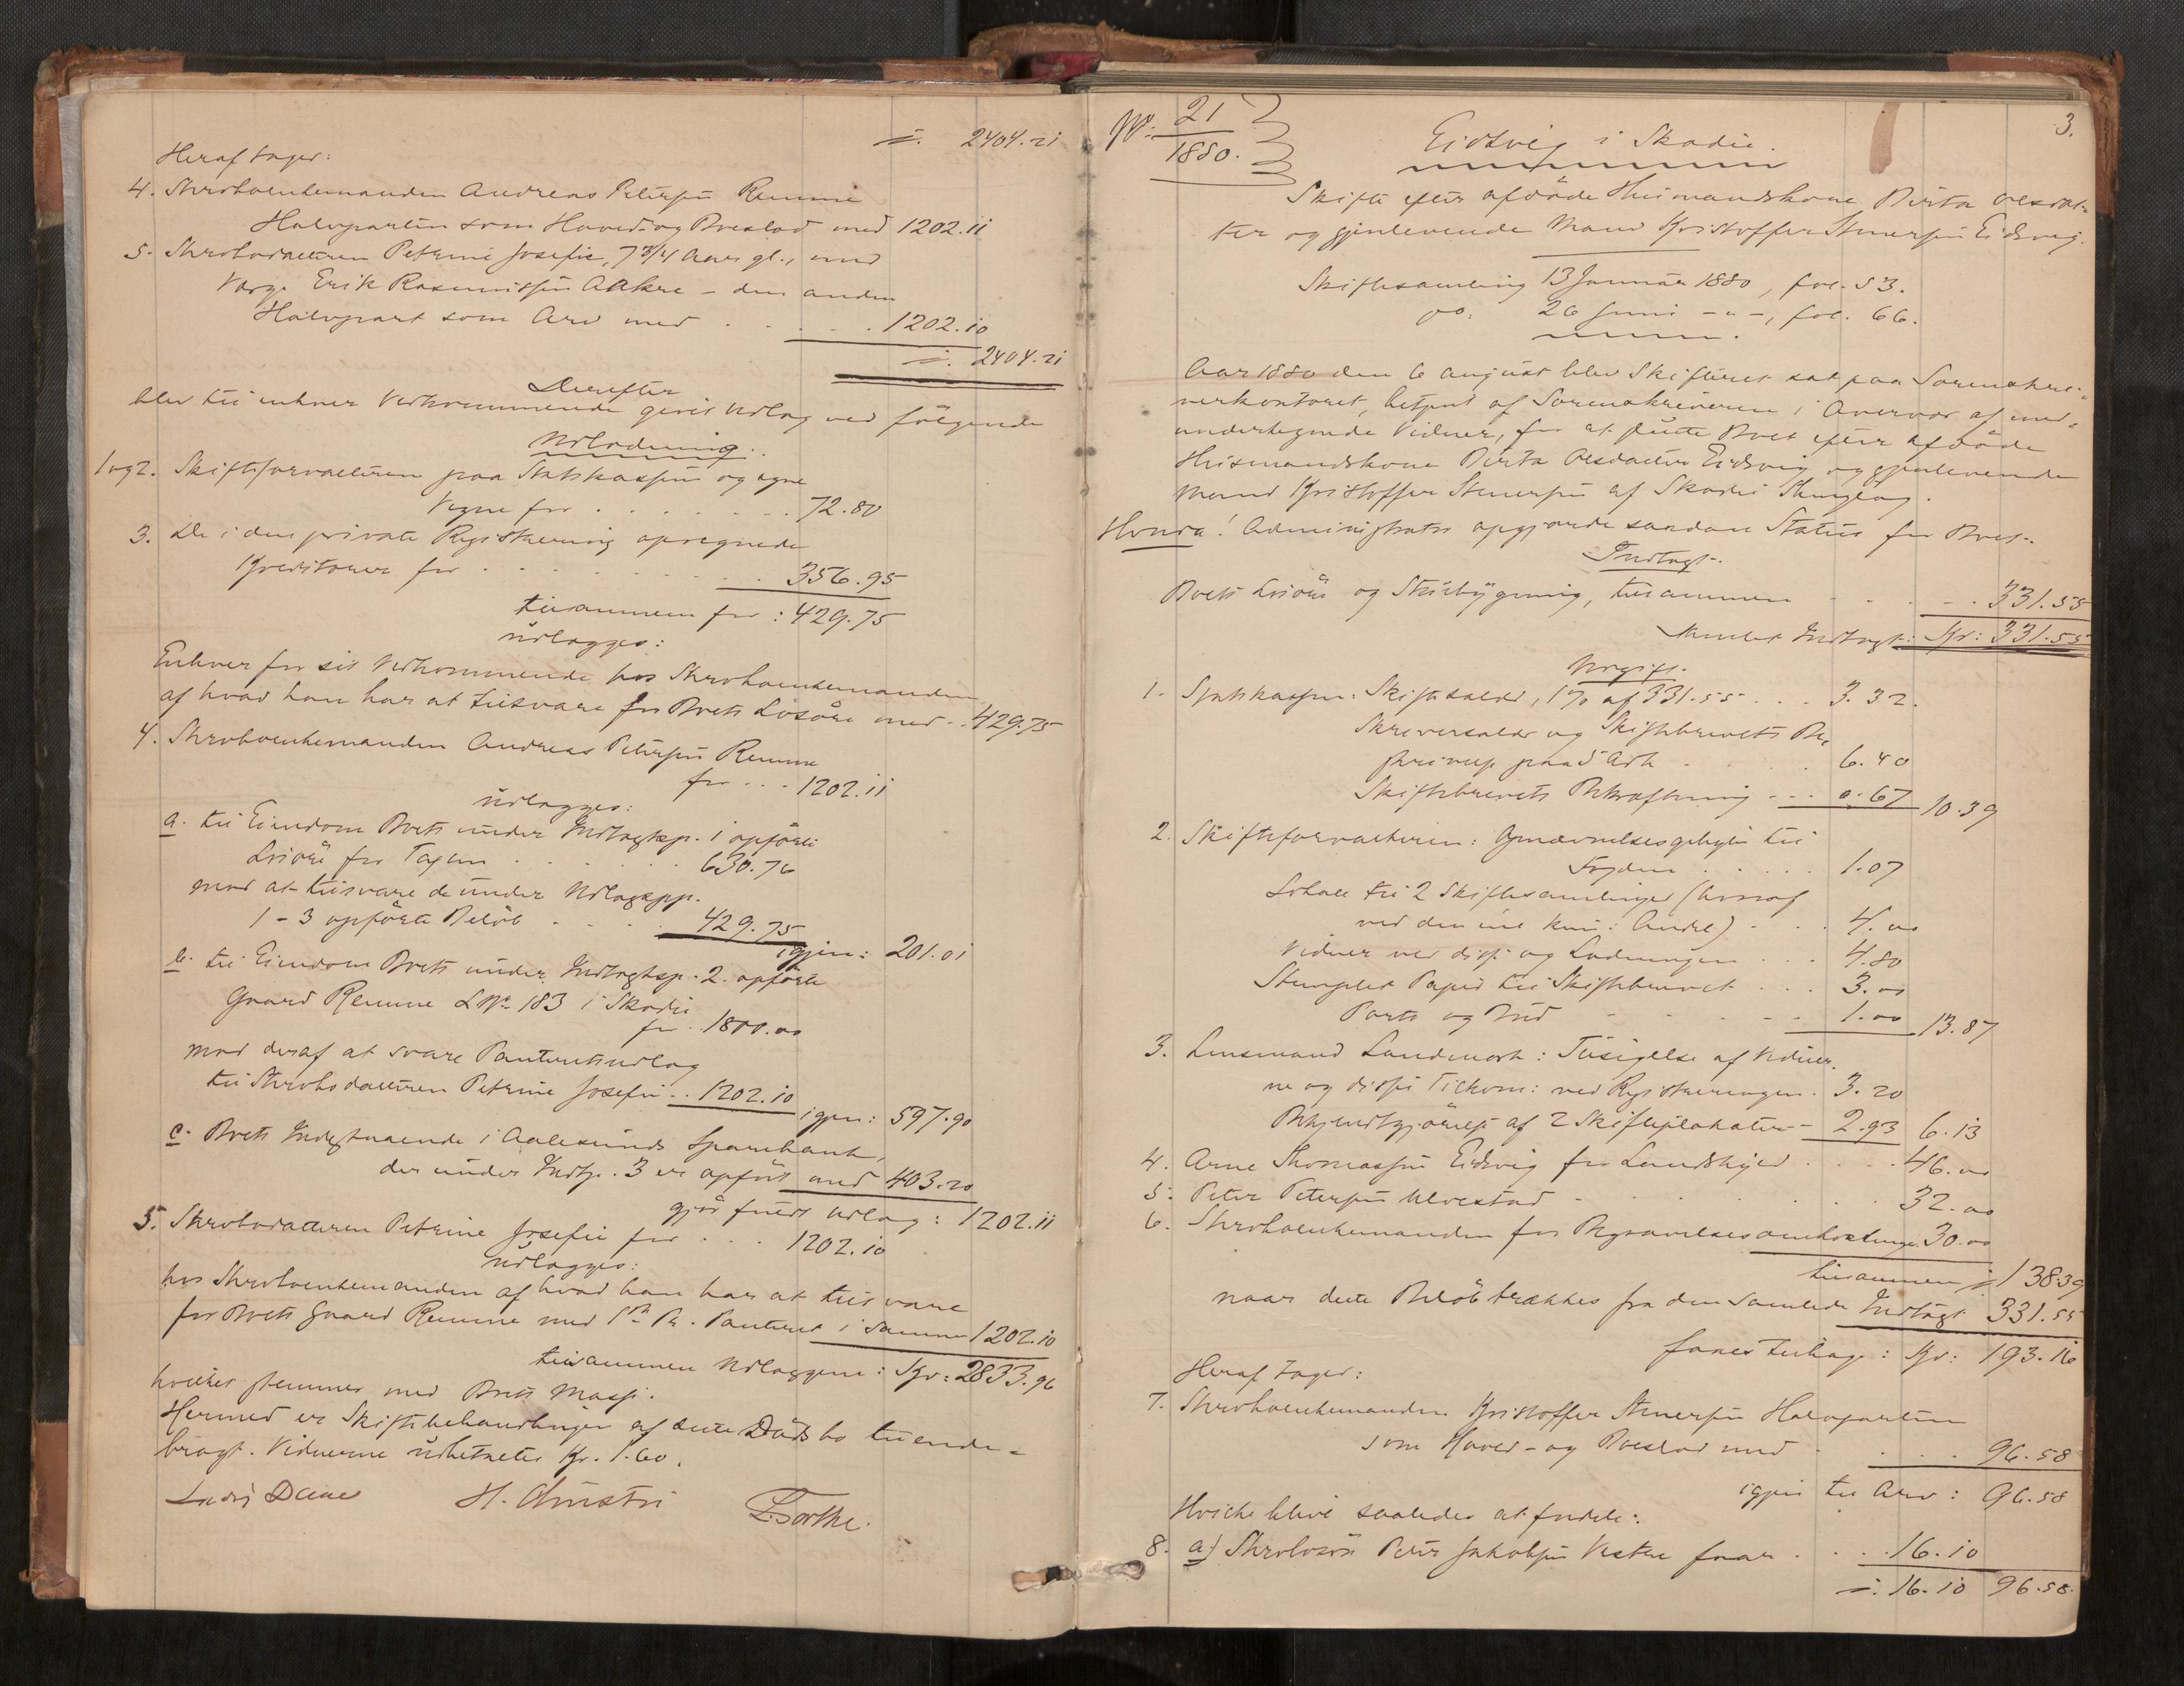 i. 2404.21
Heraf tager:
4. Sterboenkemanden Andreas Petersen Remme
Halvparten som Hoved- og Boeslod med 1202.11
5. Sterbodatteren Petrine Josefie, 7 3/4 Aar gl., med
Verge Erik Rasmussen Aakre - den anden
Halvpart som Arv med . . . . . 1202.10
i. 2404.21
Derefter
blev til enhver Vedkommende givet Udlæg ved følgende
Udlodning.
1 og 2. Skifteforvalteren paa Statskassens og egne
Vegne for . . . . . . . 72.80
3. De i den private Registrering opregnede
Kreditorer for . . . . . . . . . 356.95
tilsammen for: 429.75
udlægges:
Enhver for sit Vedkommende hos Sterboenkemanden
af hvad han har at tilsvare for Boets Løsøre med . . 429.75
4. Sterboenkemanden Andreas Petersen Remme
for . . . 1202.11
udlægges:
a. til Eiendom Boets under Indtægtsp. 1 opførte
Løsøre for Taxten . . . . . . 630.76
mod at tilsvare de under Udlægspp.
1 - 3 opførte Beløb . . . . 429.75
igjen: 201.01
b. til Eiendom Boets under Indtægtsp. 2. opførte
Gaard Remme L.No. 183 i Skodje
for . . 1800.00
mod deraf at svare Panteretsudlæg
til Sterbodatteren Petrine Josefie . . 1202.10
igjen: 597.90
c. Boets Indestaaende i Aalesunds Sparebank,
der under Indtp. 3 er opført med 403.20
gjør fuldt Udlæg: 1202.11
5. Sterbodatteren Petrine Josefie for . . . 1202.10
udlægges:
hos Sterboenkemanden af hvad han har at tilsvare
for Boets Gaard Remme med 1ste Pr. Panteret i samme 1202.10
tilsammen Udlæggene: Kr: 2833.96
hvilket stemmer med Boets Masse.
Hermed er Skiftebehandlingen af dette Dødsbo tilende-
bragt. Vidnerne udbetaltes Kr. 1.60.
H. Christie
3.
No. 21
1880.
Eidsvig i Skodje.
Skifte efter afdøde Husmandskone Birta Olsdat-
ter og gjenlevende Mand Kristoffer Stenersen Eidsvig.
Skiftesamling 13 Januar 1880, fol. 53.
do: 26 Juni - " -, fol. 66.
Aar 1880 den 6 August blev Skifteret sat paa Sorenskri-
verkontoret, betjent af Sorenskriveren i Overvær af med-
undertegnede Vidner, for at slutte Boet efter afdøde
Husmandskone Birta Olsdatter Eidsvig og gjenlevende
Mand Kristoffer Stenersen af Skodje Thinglag.
Hvorda! Administrator opgjorde saadan Status for Boet.
Indtægt.
Boets Løsøre og Stuebygning, tilsammen . . . . 331.55
Samlet Indtægt: Kr: 331.55
Udgift.
1. Statskassen: Skiftesalær, 1% af 331.55 . . . 3.32.
Skriversalær og Skiftebrevets Be-
skrivelse paa 5 Ark . . . . . 6.40
Skiftebrevets Bekræftning . . . 0.67 10.39
2. Skifteforvalteren: Opnævnelsesgebyr til
Fogden . . . . . 1.07
Lokale til 2 Skiftesamlinger (hvoraf
ved den ene kun: Andel) . . . 4.00
Vidner ved disse og Lodningen . . . 4.80
Stemplet Papir til Skiftebrevet . . . 3.00
Porto og Bud . . . . . . 1.00 13.87
3. Lensmand Landmark: Tilsigelse af Vidner-
ne og disses Tilkom: ved Registreringen . 3.20
Bekjendtgjørelse af 2 Skifteplakater - 2.93 6.13
4. Arne Thomassen Eidsvig for Landskyld . . . . 46.00
5. Peter Petersen Ulvestad . . . . . . 32.00
6. Sterboenkemanden for Begravelsesomkostninger 30.00
tilsammen i. 138.39
naar dette Beløb trækkes fra den samlede Indtægt 331.55
faaes tilbage: Kr: 193.16
Heraf tager:
7. Sterboenkemanden Kristoffer Stenersen Halvparten
som Hoved- og Boeslod med . . . . . 96.58
igjen til Arv: 96.58
Hvilke blive saaledes at fordele:
8. a) Sterbosøn Peter Jakobsen Vestre faar . . . . 16.10
i. 16.10 96.58.